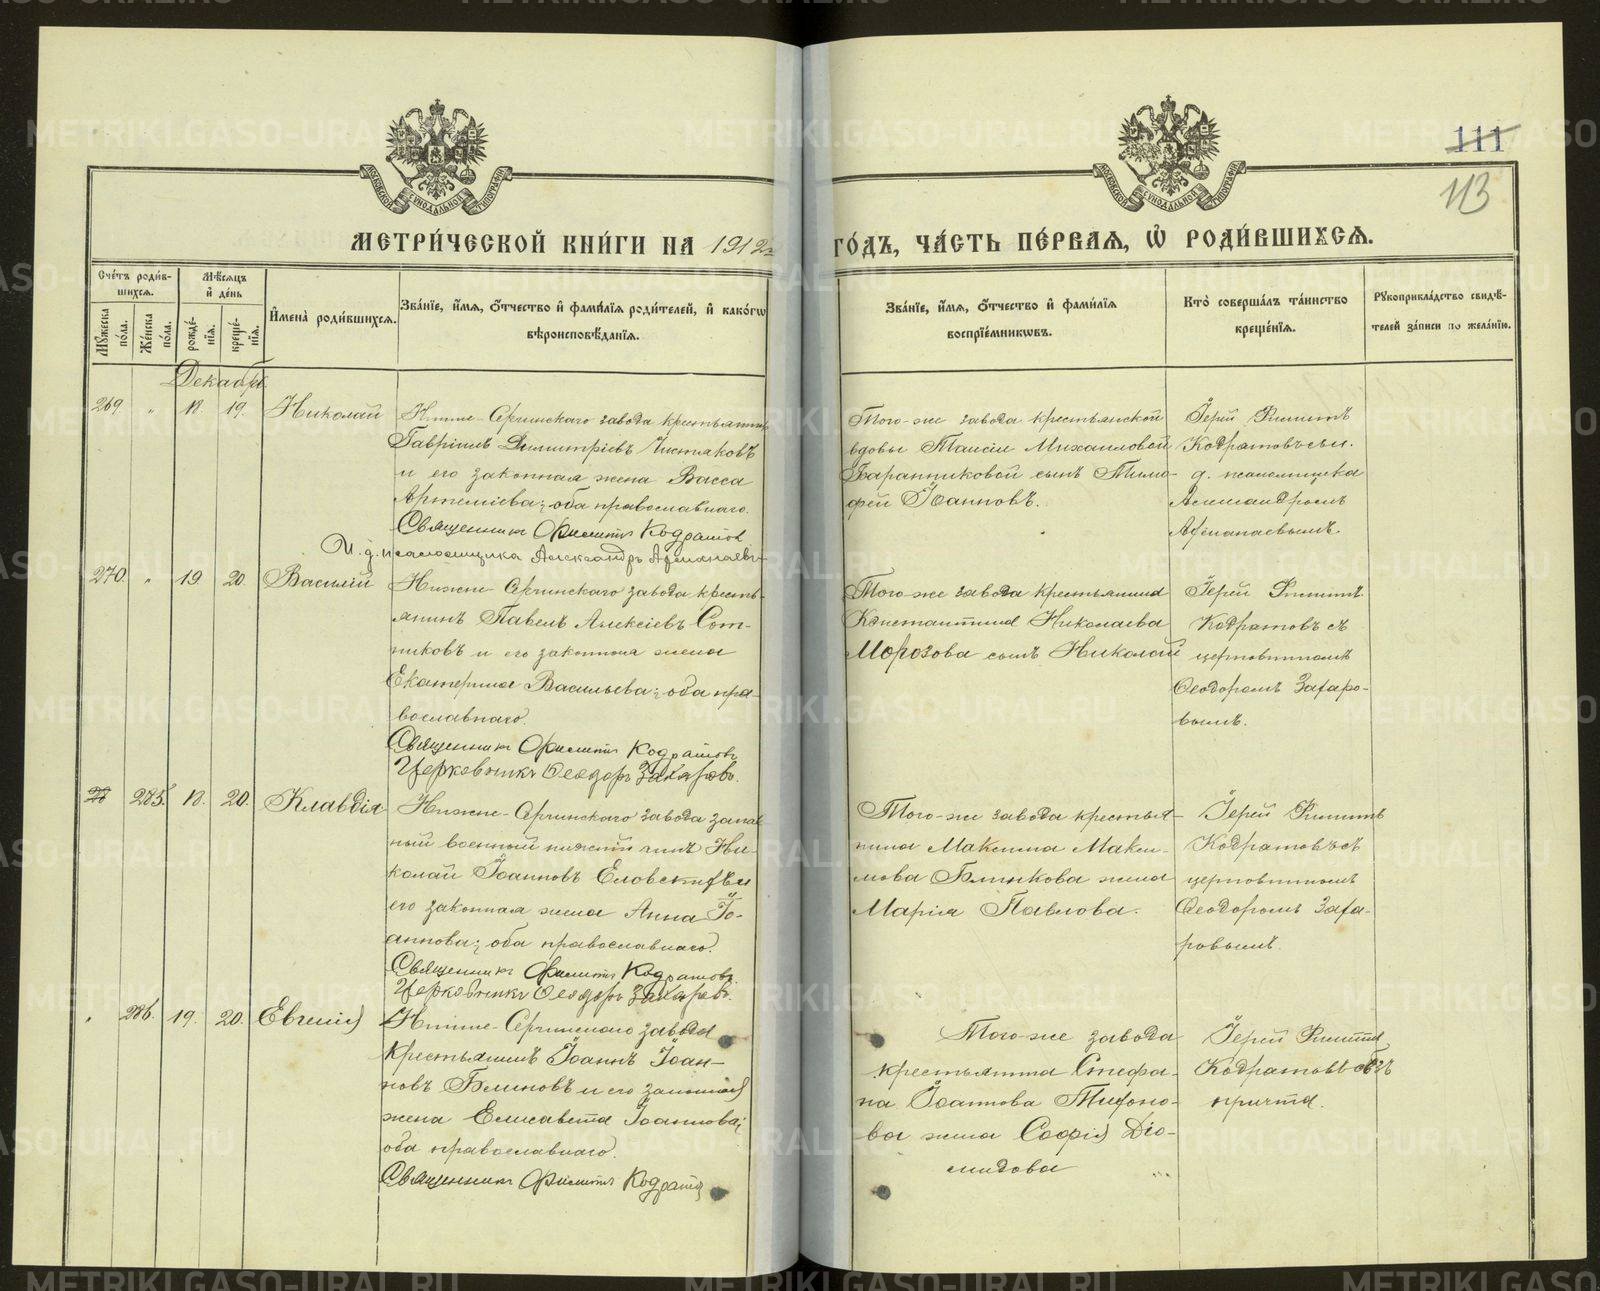 111
113
МЕТРИ́ЧЕСКОЙ КНИ́ГИ НА 1912
ГО́ДЪ, ЧА́СТЬ ПЕ́РВАЯ, Ѡ҆ РОДИ́ВШИХСЯ.
Сче́тъ роди́в-
шихся.
Мѣ́сяцъ
и҆ де́нь
Му́жеска
по́ла.
Же́нска
по́ла.
рожде́-
нїя.
креще́-
нїя.
И҆мена̀ роди́вшихся.
Зва́нїе, и҆́мя, ѻ҆́тчество и҆ фами́лїя роди́телей, и҆ како́гѡ
вѣроисповѣ́данїя.
Зва́нїе, и҆́мя, ѻ҆́тчество и҆ фами́лїя
воспрїе́мникѡвъ.
Кто̀ соверша́лъ та́инство
креще́нїя.
Рукоприкла́дство свидѣ́-
телей за́писи по жела́нїю.
Декабрь
269. " 18. 19. Николай
Нижне-Сергинскаго завода крестьянинъ
Гавріилъ Димитріевъ Чистяковъ
и его законная жена Васса
Артеміева; оба православнаго.
Священникъ Филиппъ Кодратов
И. д. псаломщика Александръ Афанасьевъ
Того-же завода крестьянской
вдовы Таисіи Михаиловой
Баранниковой сынъ Тимо-
фей Іоанновъ.
Іерей Филиппъ
Кодратовъ съ и.
д. псаломщика
Александромъ
Афанасьевымъ.
270. " 19. 20. Василій
Нижне-Сергинскаго завода кресть-
янинъ Павелъ Алексіевъ Сот-
никовъ и его законная жена
Екатерина Васильева; оба пра-
вославнаго.
Священникъ Филиппъ Кодратовъ
Церковникъ Ѳеодоръ Захаровъ.
Того-же завода крестьянина
Константина Николаева
Морозова сынъ Николай
Іерей Филиппъ
Кодратовъ съ
церковникомъ
Ѳеодоромъ Захаро-
вымъ.
285. 18. 20. Клавдія
Нижне-Сергинскаго завода запас
ный военный нижній чинъ Ни-
колай Іоанновъ
его законная жена Анна Іо-
аннова; оба православнаго.
Священникъ Филиппъ Кодратовъ
Церковникъ Ѳеодоръ Захаровъ.
Того-же завода крестья-
нина Максима Макси-
мова Блинкова жена
Марія Павлова.
Іерей Филиппъ
Кодратовъ съ
церковникомъ
Ѳеодоромъ Заха-
ровымъ.
" 286. 19. 20. Евгенія
Нижне-Сергинскаго завода
крестьянинъ Іоаннъ Іоан-
новъ Блиновъ и его законная
жена Елисавета Іоаннова;
оба православнаго.
Священникъ Филиппъ Кодратов
Того-же завода
крестьянина Стефа-
на Іоаннова Тифоно-
ва жена Софія Діо-
мидова
Іерей Филиппъ
Кодратовъ безъ
причта.
METRIKI.GASO-URAL.RU